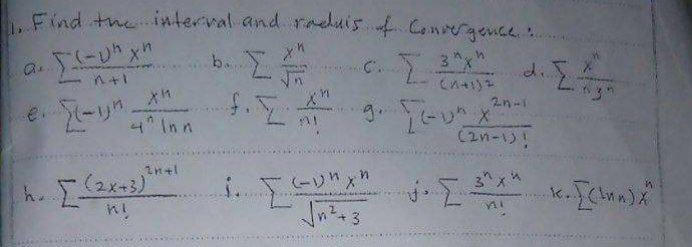 1. Find the interval and raduis of Convergence:
a. ∑ (-1)ⁿ xⁿ / n+1 b. ∑ xⁿ / √n c. ∑ 3ⁿxⁿ / (n+1)² d. ∑ xⁿ / n3ⁿ
e. ∑(-1)ⁿ xⁿ / 4ⁿ ln n f. ∑ xⁿ / n! g. ∑(-1)ⁿ x²ⁿ⁻¹ / (2n-1)!
h. ∑ (2x+3)²ⁿ⁺¹ / n! i. ∑ (-1)ⁿ xⁿ / √n²+3 j. ∑ 3ⁿ xⁿ / n! k. ∑(ln n)xⁿ